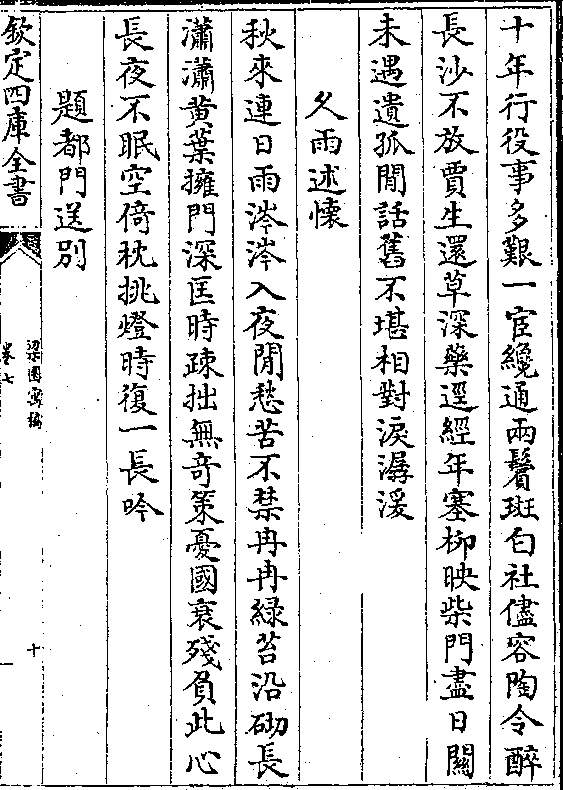 十年行役事多艱一官纔通兩鬢斑白社儘容陶令醉
長沙不放賈生還草深藥逕經年塞柳映柴門盡日關
未遇遺孤閒話舊不堪相對淚潺湲
久雨述懷
秋來連日雨涔涔入夜閒愁苦不禁冉冉緑苔沿砌長
瀟瀟黄葉擁門深匡時疎拙無竒策憂國衰殘負此心
長夜不眠空倚枕挑燈時復一長吟
題都門送别
欽定四庫全書
梁園寓稿
卷七
十